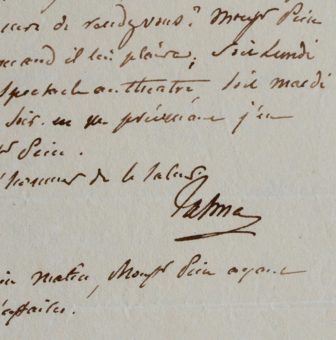 de rendezvous? Monsr Pein
quand il lui plaira, soit Lundi
spectacle au theatre soit mardi
Soir. en me prévenant j'en
Pein.
l'honneur de le saluer.
Talma
matin, Monsr Pein ayant
affaires.